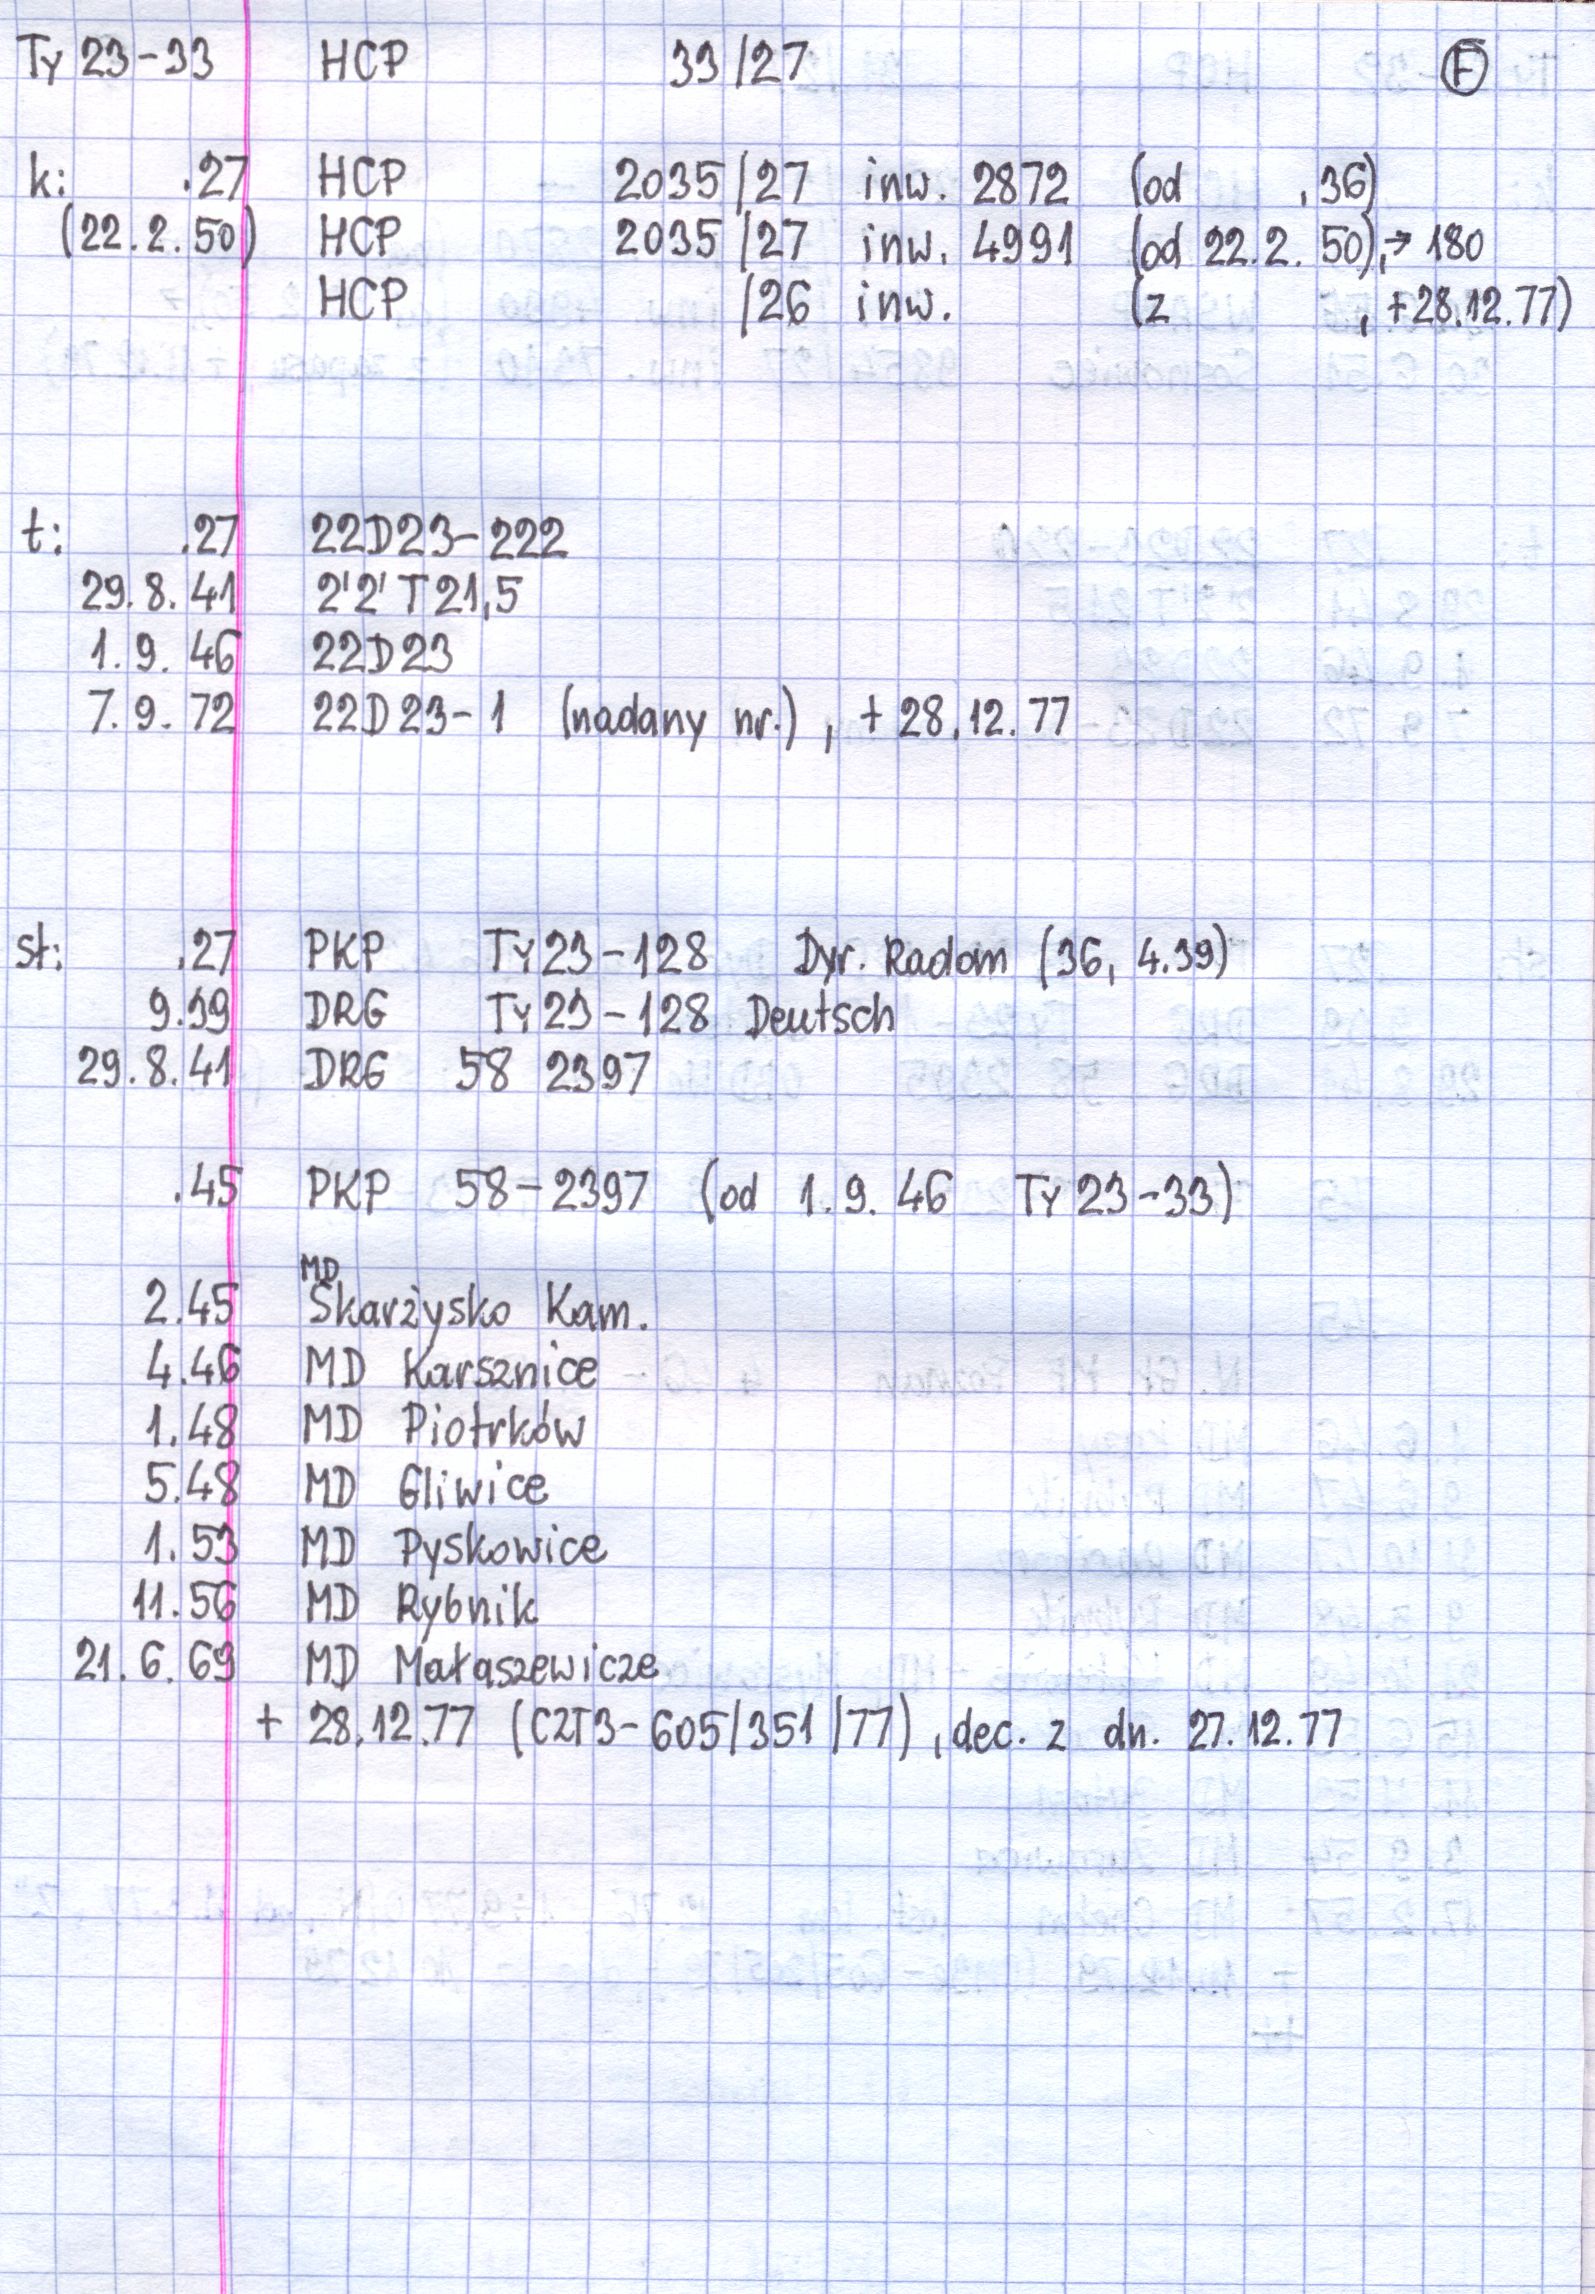 Ty 23-33 HCP 33/27 F
k: .27 HCP 2035/27 inw. 2872 (od .36)
(22.2.50) HCP 2035/27 inw. 4991 (od 22.2.50), → 180
HCP /26 inw. (z , +28.12.77)
t: .27 22D23-222
29.8.41 2'2' T 21,5
1.9.46 22D23
7.9.72 22D23-1 (nadany nr.), + 28.12.77
st: .27 PKP Ty23-128 Dyr. Radom (36, 4.39)
9.39 DRG Ty23-128 Deutsch
29.8.41 DRG 58 2397
.45 PKP 58-2397 (od 1.9.46 Ty 23-33)
2.45 MD Skarżysko Kam.
4.46 MD Karsznice
1.48 MD Piotrków
5.48 MD Gliwice
1.53 MD Pyskowice
11.56 MD Rybnik
21.6.69 MD Małaszewicze
+ 28.12.77 (CZT3-605/351/77), dec. z dn. 27.12.77